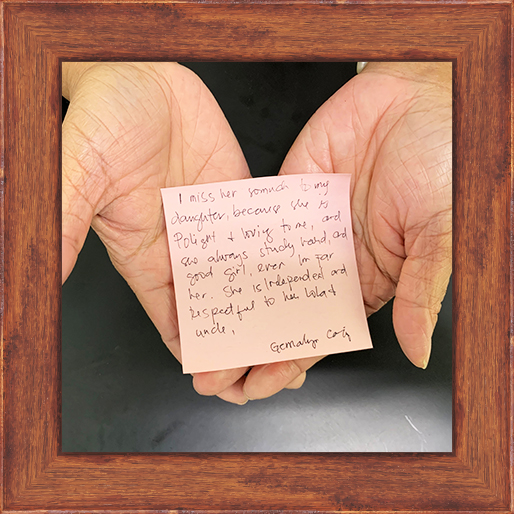 I miss her somuch to my
daughter, because she is
Polight & loving to me, and
she always study hard, and
good girl, even Im far
her. She is Independed and
respectful to her
uncle,
Gemalyn